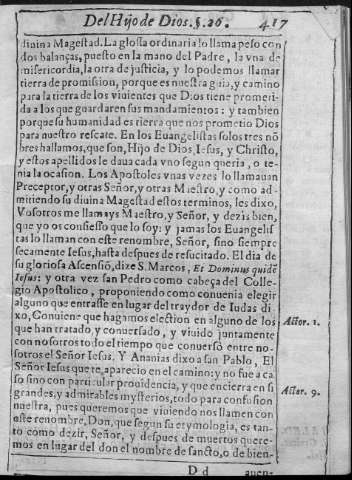 Del Hijo de Dios. §. 26. 417
diuina Magestad. La glossa ordinaria lo llama peso con
dos balanças, puesto en la mano del Padre, la vna de
misericordia, la otra de justicia, y lo podemos llamar
tierra de promision, porque es nuestra guia, y camino
para la tierra de los viuientes que Dios tiene prometi-
da a los que guardaren sus mandamientos: y tambien
porque su humanidad es tierra que nos prometio Dios
para nuestro rescate. En los Euangelistas solos tres nõ
bres hallamos, que son, Hijo de Dios, Iesus, y Christo,
y estos apellidos le daua cada vno segun queria, o te-
nia la ocasion. Los Apostoles vnas vezes lo llamauan
Preceptor, y otras Señor, y otras Maestro, y como ad-
mitiendo su diuina Magestad estos terminos, les dixo,
Vosotros me llamays Maestro, y Señor, y dezis bien,
que yo os confiesso que lo soy: y jamas los Euangelis
tas lo llaman con este renombre, Señor, sino siempre
secamente Iesus, hasta despues de resucitado. El dia de
su gloriosa Ascensiõ, dize S. Marcos, Et Dominus quidẽ
Iesus: y otra vez san Pedro como cabeça del Colle-
gio Apostolico, proponiendo como conuenia elegir
alguno que entrasse en lugar del traydor de Iudas di-
xo, Conuiene que hagamos election en alguno de los
que han tratado, y conuersado, y viuido juntamente
con nosotros todo el tiempo que conuersò entre no-
sotros el Señor Iesus. Y Ananias dixo a san Pablo, El
Señor Iesus que te aparecio en el camino: y no fue a ca
so sino con particular prouidencia, y que encierra en si
grandes, y admirables mysterios, todo para confusion
nuestra, pues queremos que viuiendo nos llamen con
este renombre, Don, que segun su etymologia, es tan-
to como dezir, Señor, y despues de muertos quere-
mos en lugar del don el nombre de sancto, o de bien-
Actor. 1.
Actor. 9.
D d auen-